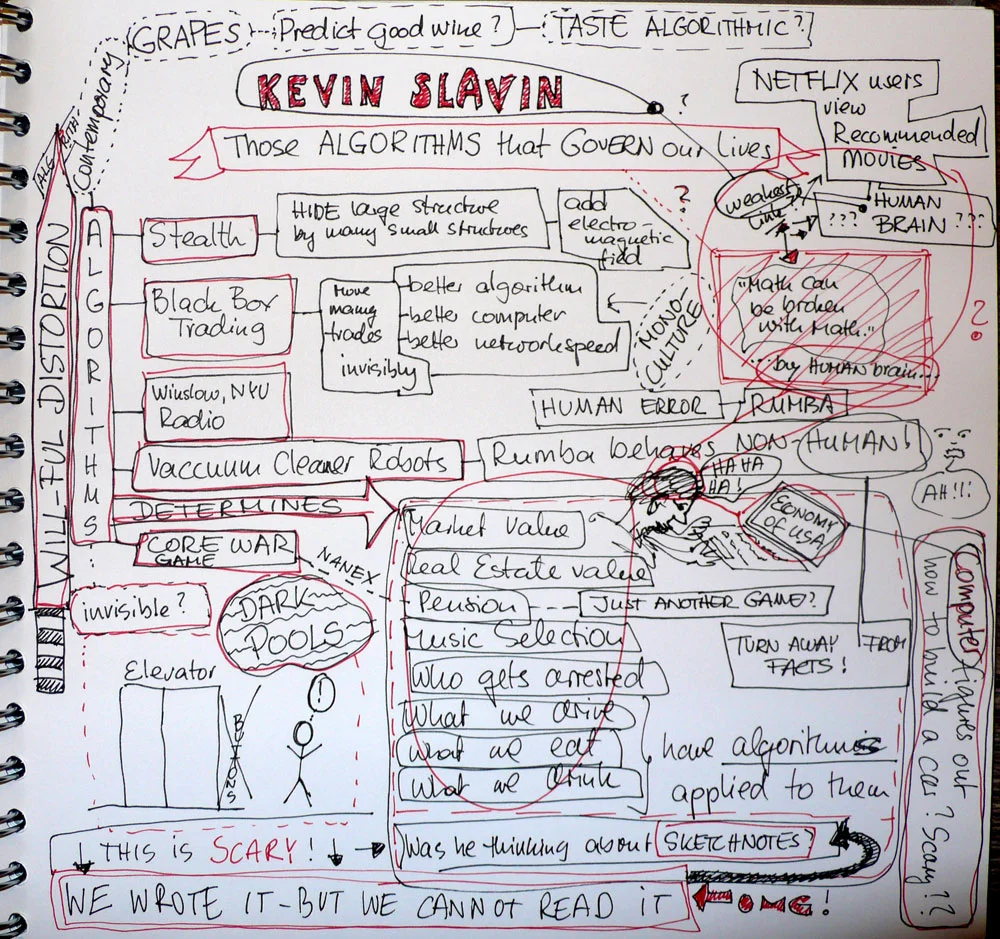 GRAPES
Predict good wine?
TASTE ALGORITHMIC?
Contemporary
KEVIN SLAVIN
?
Those ALGORITHMS that GOVERN our Lives
NETFLIX users
view
Recommended
MOVIES
weakest
link
HUMAN
??? BRAIN ???
?
ALGORITHMS...
WILL-FUL DISTORTION
Stealth
HIDE large structure
by many small structures
add
electro-
magnetic
field
Black Box
Trading
Move
many
trades
invisibly
-better algorithm
-better computer
-better networkspeed
MONO
CULTURE
"Math can
be broken
with Math."
...by HUMAN brain...
?
Winslow, NYU
Radio
HUMAN ERROR
RUMBA
Vaccuum Cleaner Robots
Rumba behaves NON-HUMAN!
HA HA
HA!
AH!!!
DETERMINES
CORE WAR
GAME
NANEX
ECONOMY
OF USA
Market value
Real Estate value
Pension
JUST ANOTHER GAME?
Music Selection
Who gets arrested
What we drive
What we eat
What we drink
have algorithms
applied to them
TURN AWAY FROM
FACTS!
invisible?
DARK
POOLS
Elevator
BUTTONS
!
Computer figures out
how to build a car? Scary??
THIS IS SCARY!
Was he thinking about SKETCHNOTES?
WE WROTE IT-BUT WE CANNOT READ IT
OMG!